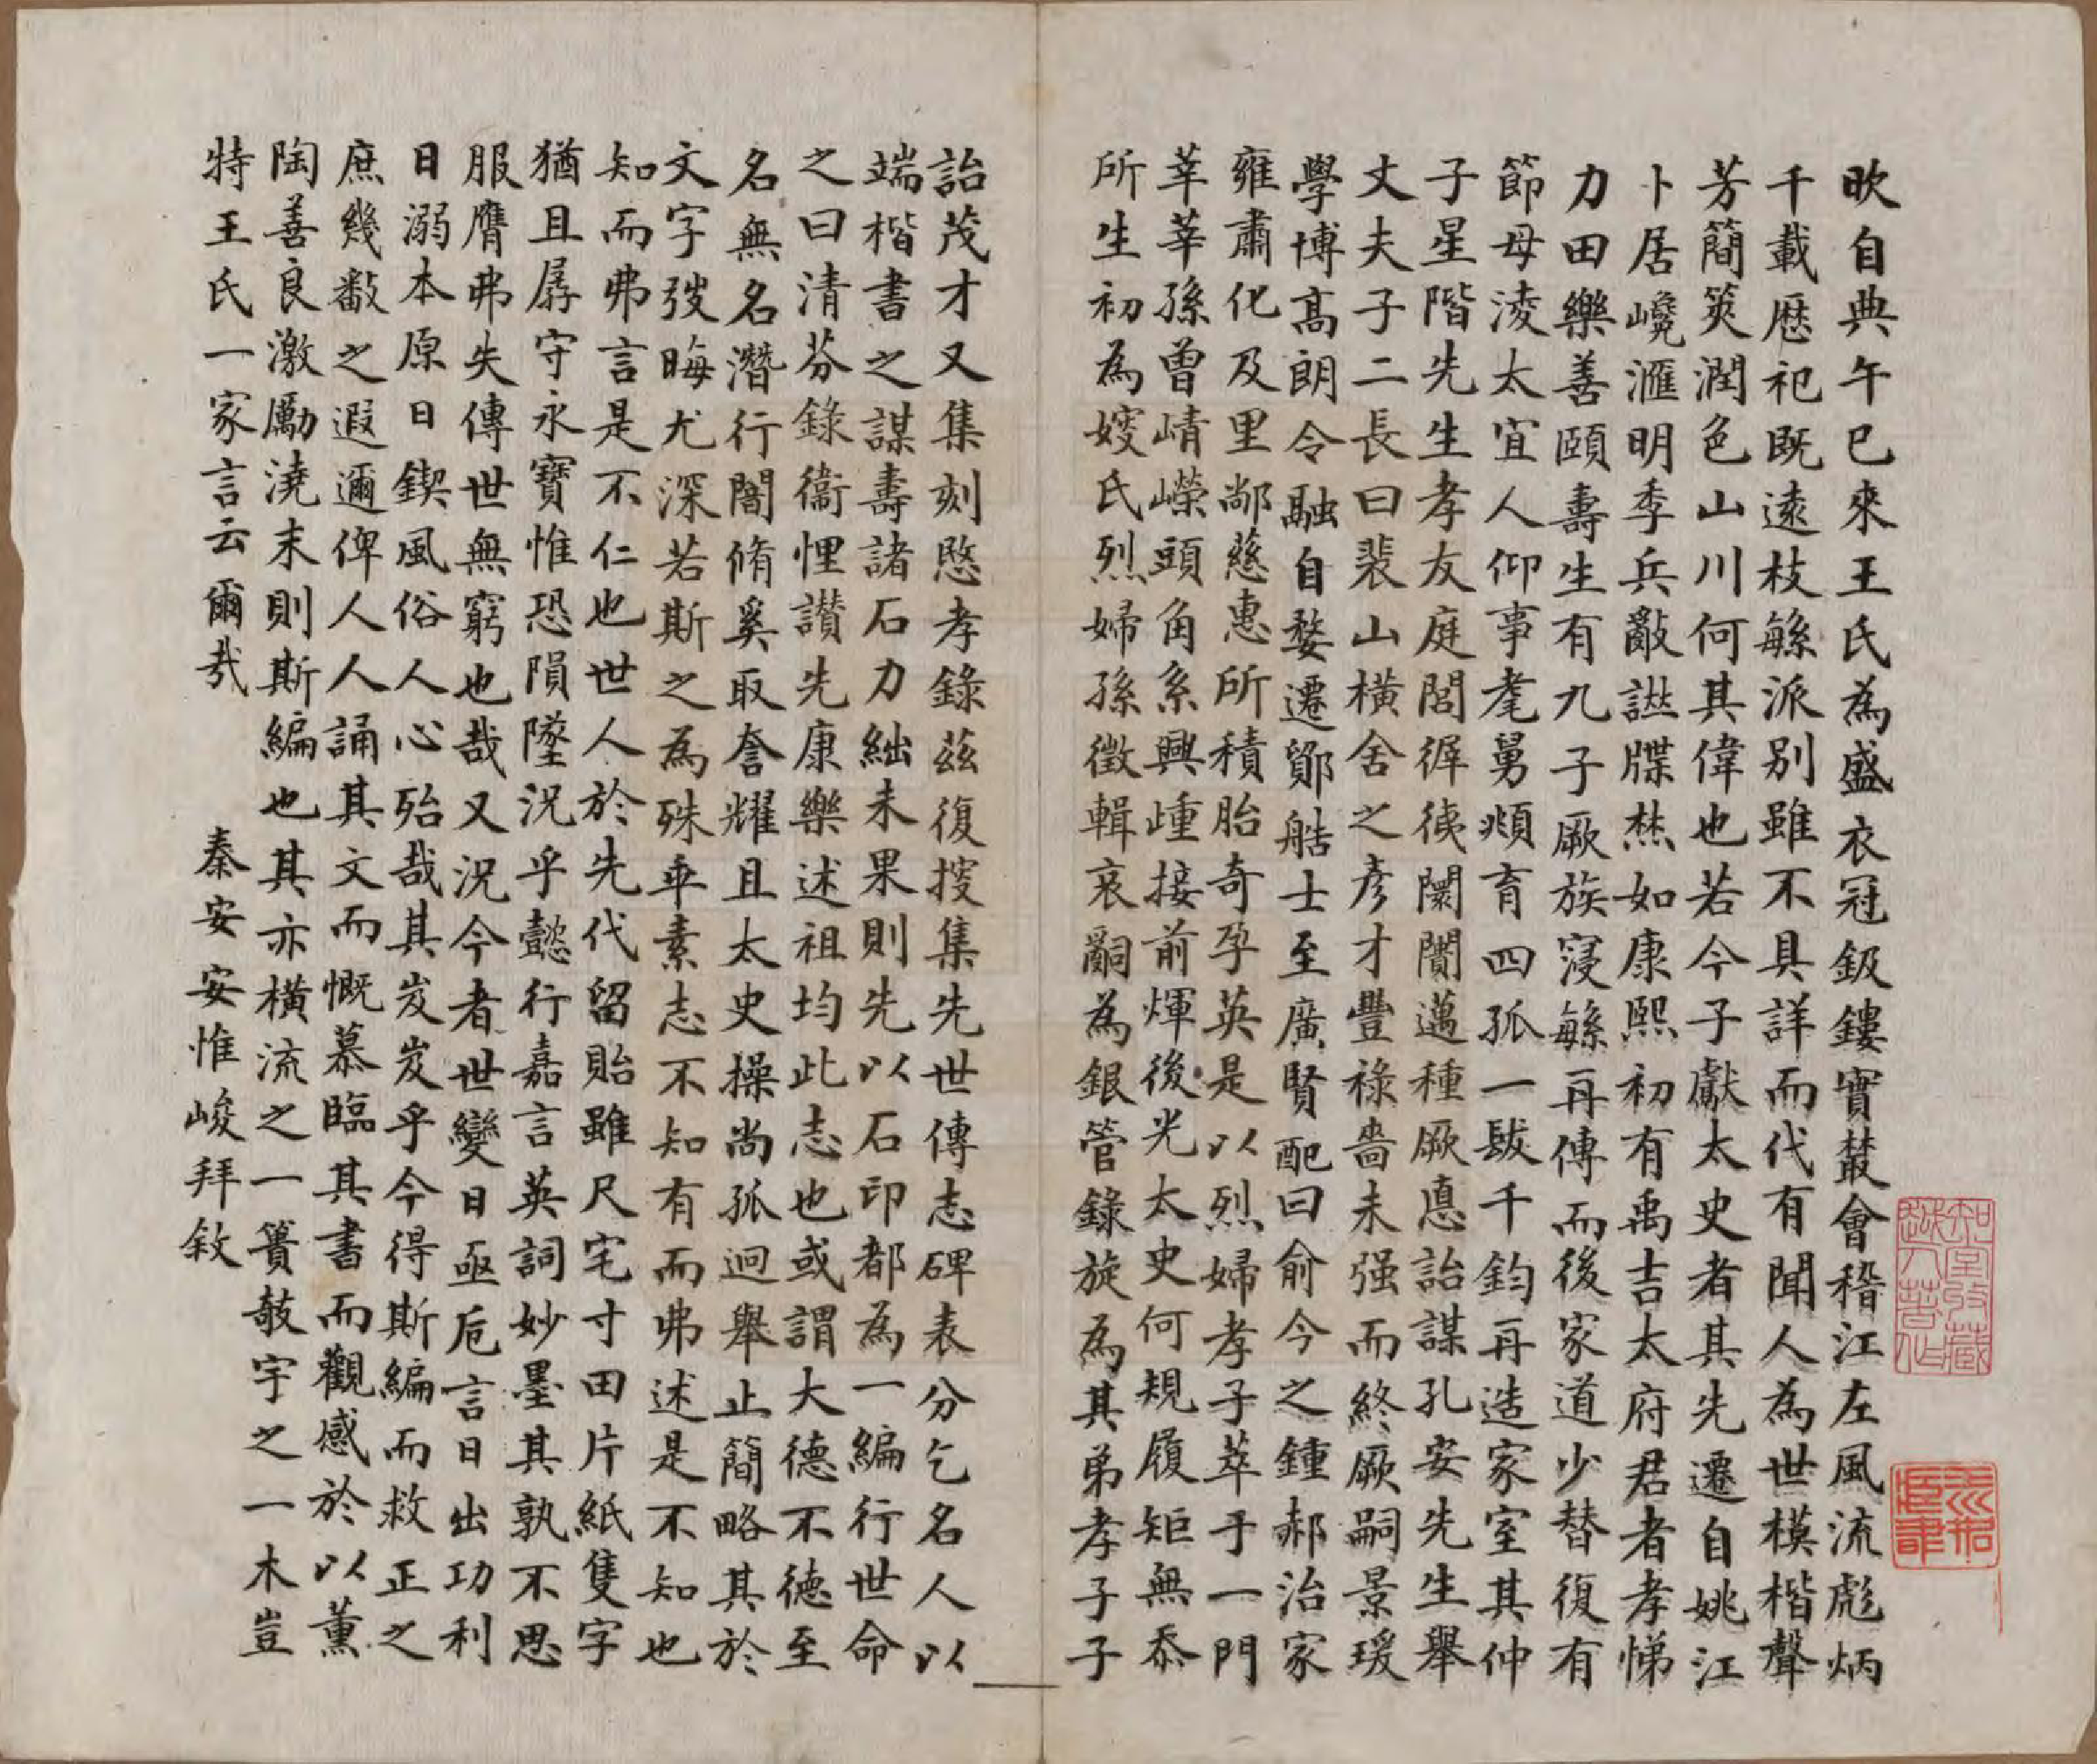 欥自典午已來王氏為盛衣冠鈒鏤實藂會稽江左風流彪炳
千載歷祀既遠枝緐派別雖不具詳而代有聞人為世模楷聲
芳簡筴潤色山川何其偉也若今子獻太史者其先遷自姚江
卜居巉滙明季兵敽譜牒爇如康熙初有禹吉太府君者孝悌
力田樂善頤壽生有九子厥族寖緐再傳而後家道少替復有
節母淩太宜人仰事耄舅煩育四孤一髮千鈞再造家室其仲
子星階先生孝友庭闈徲徺闤闠邁種厥悳詒謀孔安先生舉
丈夫子二長曰裴山橫舍之彥才豐祿嗇未强而終厥嗣景瑗
學博高朗令融自婺遷鄞艁士至廣賢配曰俞今之鍾郝治家
雍肅化及里鄰慈惠所積胎奇孕英是以烈婦孝子萃于一門
莘莘孫曾崝嶸頭角系興踵接前煇後光太史何規履矩無忝
所生初為嫂氏烈婦孫徵輯哀嗣為銀管錄旋為其弟孝子子
詒茂才又集刻愍孝錄茲復搜集先世傳志碑表分乞名人以
端楷書之謀壽諸石力絀未果則先以石印都為一編行世命
之曰清芬錄衞悝讚先康樂述祖均此志也或謂大德不德至
名無名潛行闇脩奚取夸耀且太史操尚孤迥舉止簡略其於
文字弢晦尤深若斯之為殊乖素志不知有而弗述是不知也
知而弗言是不仁也世人於先代留貽雖尺宅寸田片紙隻字
猶且孱守永寶惟恐隕墜況乎懿行嘉言英詞妙墨其孰不思
服膺弗失傳世無窮也哉又況今者世變日亟卮言日出功利
日溺本原日鍥風俗人心殆哉其岌岌乎今得斯編而救正之
庶幾敽之遐邇俾人人誦其文而慨慕臨其書而觀感於以薰
陶善良激勵澆末則斯編也其亦橫流之一簣敧宇之一木豈
特王氏一家言云爾哉
秦安安惟峻拜敘
知堂收藏越人著作